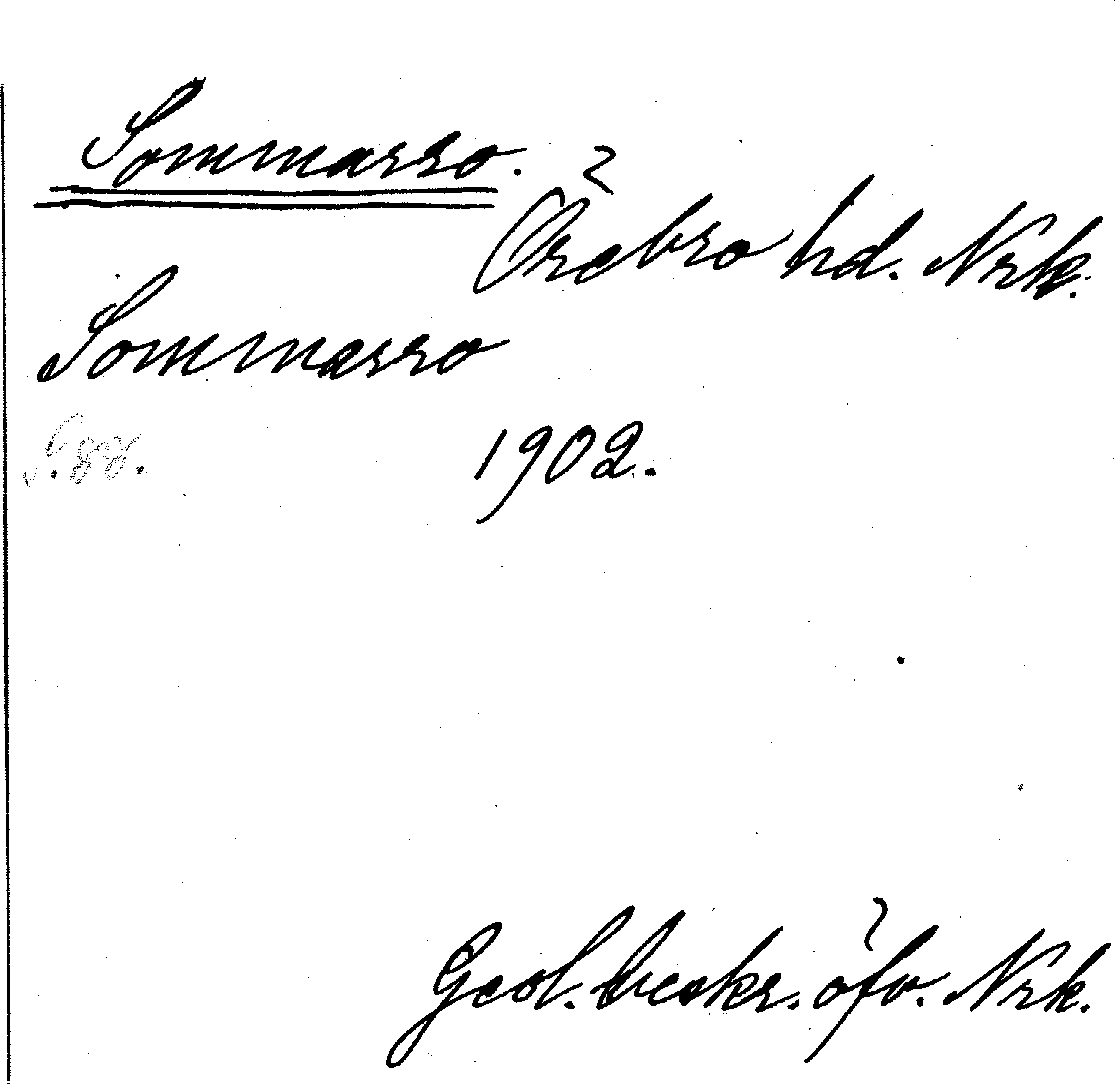 Sommarro.
Örebro hd. Nrk.
Sommarro
S. 88. 1902.
Geol. beskr. öfv. Nrk.